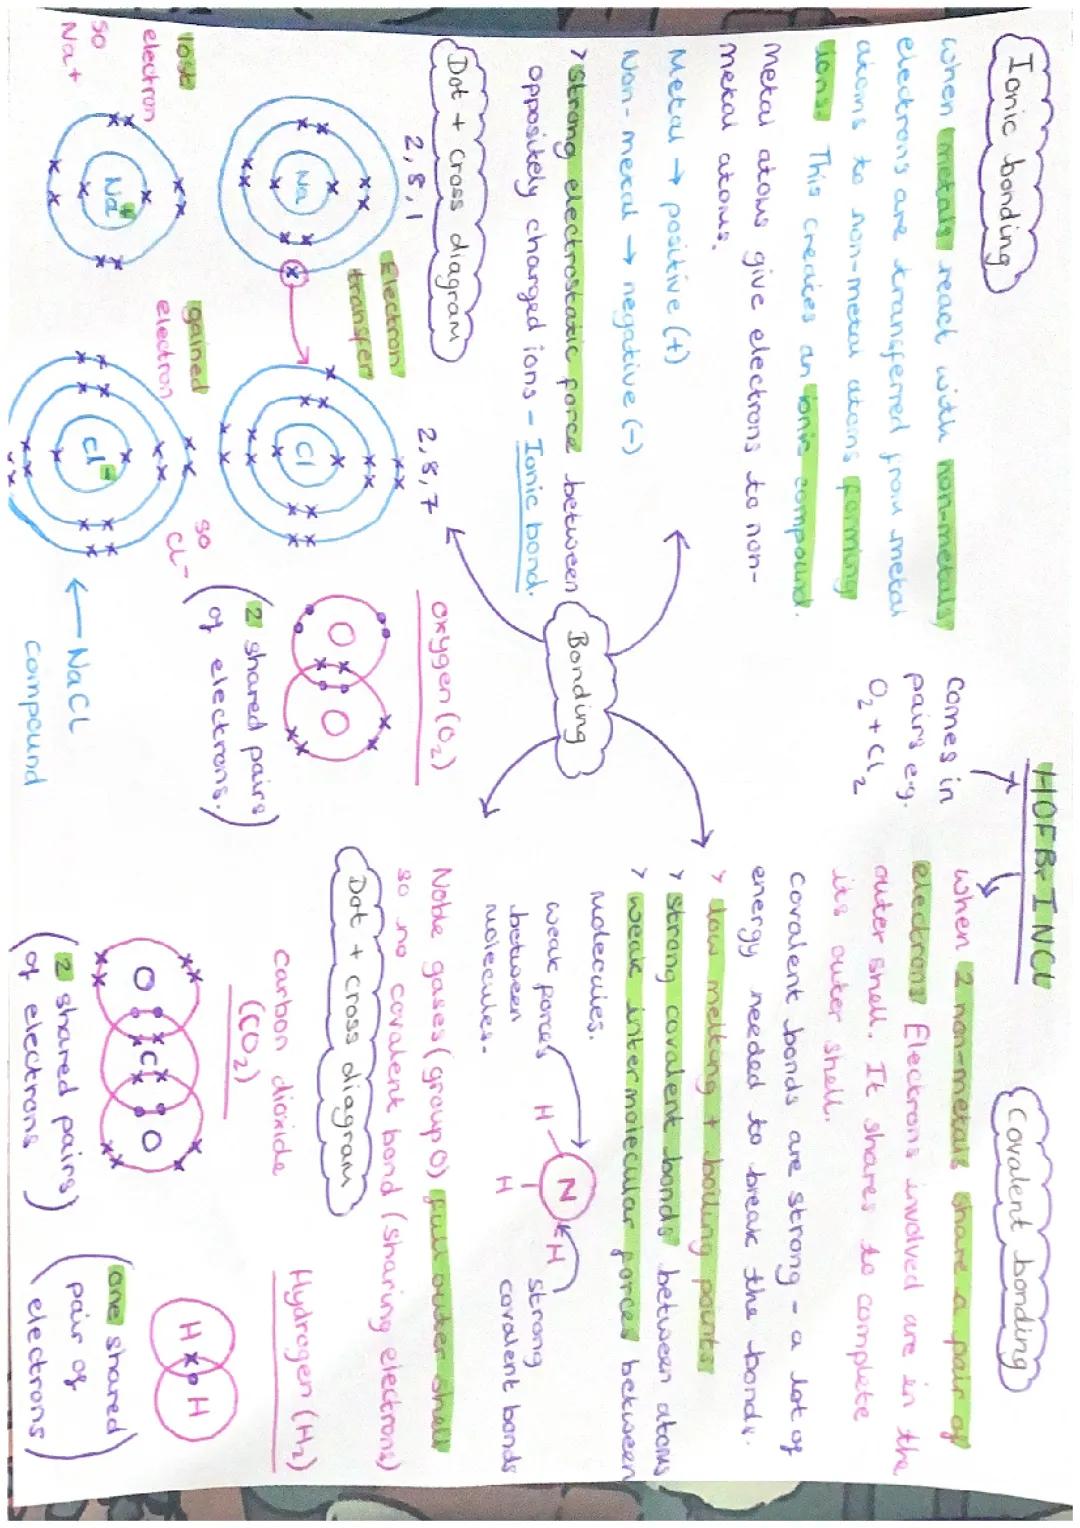 HOFBrINCl
comes in
pairs e.g.
O2 + Cl2
Ionic bonding
when metals react with non-metals
electrons are transferred from metal
atoms to non-metal atoms forming
ions. This creates an ionic compound.
metal atoms give electrons to non-
metal atoms.
Metal → positive (+)
Non-metal → negative (-)
> strong electrostatic force between
oppositely charged ions - Ionic bond.
Bonding
Covalent bonding
when 2 non-metals share a pair of
electrons Electrons involved are in the
outer shell. It shares to complete
its outer shell.
Covalent bonds are strong - a lot of
energy needed to break the bonds.
> low melting + boiling points
> strong covalent bonds between atoms
> weak intermolecular forces between
molecules.
weak forces
between
molecules.
H
N
H
H
strong
covalent bonds
Noble gases (group 0) full outer shell
so no covalent bond (sharing electrons)
Dot + cross diagram
2,8,1
2,8,7
Electron
transfer
Na
Cl
lost
electron
so
Na+
Na+
gained
electron
so
Cl-
Cl-
← NaCl
compound
oxygen (O2)
O
O
(2 shared pairs
of electrons.)
Dot + cross diagram
Carbon dioxide
(CO2)
O
C
O
(2 shared pairs
of electrons)
Hydrogen (H2)
H
H
(one shared
pair of
electrons)